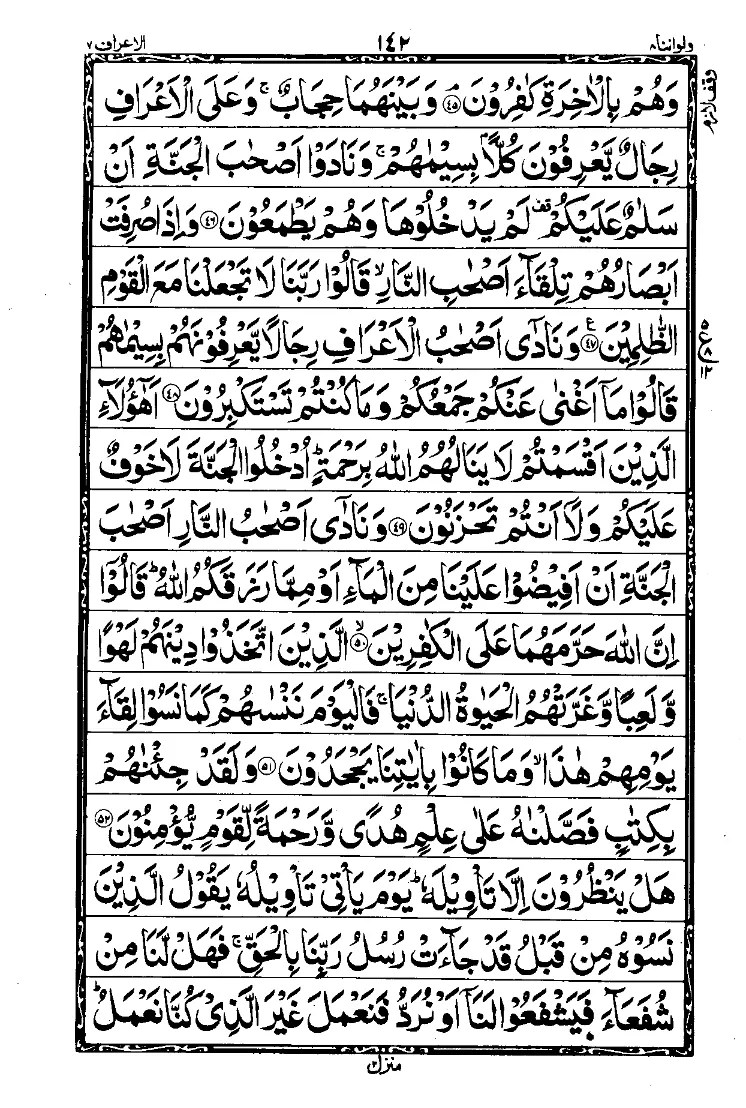 ولواننا ٨ ١٤٢ الاعراف ٧
وَهُمْ بِالْاٰخِرَةِ كٰفِرُوْنَ ۘ﴿۴۵﴾ وَبَيْنَهُمَا حِجَابٌ ۚ وَعَلَى الْاَعْرَافِ
وقف لازم
رِجَالٌ يَّعْرِفُوْنَ كُلًّاۢ بِسِيْمٰىهُمْ ۚ وَنَادَوْا اَصْحٰبَ الْجَنَّةِ اَنْ
سَلٰمٌ عَلَيْكُمْ ۫قف لَمْ يَدْخُلُوْهَا وَهُمْ يَطْمَعُوْنَ ﴿۴۶﴾ وَاِذَا صُرِفَتْ
اَبْصَارُهُمْ تِلْقَآءَ اَصْحٰبِ النَّارِ ۙ قَالُوْا رَبَّنَا لَا تَجْعَلْنَا مَعَ الْقَوْمِ
الظّٰلِمِيْنَ ﴿۴۷﴾ ع وَنَادٰۤى اَصْحٰبُ الْاَعْرَافِ رِجَالًا يَّعْرِفُوْنَهُمْ بِسِيْمٰىهُمْ
۵ ع ۸ ۱۲
قَالُوْا مَاۤ اَغْنٰى عَنْكُمْ جَمْعُكُمْ وَمَا كُنْتُمْ تَسْتَكْبِرُوْنَ ﴿۴۸﴾ اَهٰٓؤُلَآءِ
الَّذِيْنَ اَقْسَمْتُمْ لَا يَنَالُهُمُ اللّٰهُ بِرَحْمَةٍ ؕ اُدْخُلُوا الْجَنَّةَ لَا خَوْفٌ
عَلَيْكُمْ وَلَاۤ اَنْتُمْ تَحْزَنُوْنَ ﴿۴۹﴾ وَنَادٰۤى اَصْحٰبُ النَّارِ اَصْحٰبَ
الْجَنَّةِ اَنْ اَفِيْضُوْا عَلَيْنَا مِنَ الْمَآءِ اَوْ مِمَّا رَزَقَكُمُ اللّٰهُ ؕ قَالُوْۤا
اِنَّ اللّٰهَ حَرَّمَهُمَا عَلَى الْكٰفِرِيْنَ ۙ﴿۵۰﴾ الَّذِيْنَ اتَّخَذُوْا دِيْنَهُمْ لَهْوًا
وَّلَعِبًا وَّغَرَّتْهُمُ الْحَيٰوةُ الدُّنْيَا ۚ فَالْيَوْمَ نَنْسٰىهُمْ كَمَا نَسُوْا لِقَآءَ
يَوْمِهِمْ هٰذَا ۙ وَمَا كَانُوْا بِاٰيٰتِنَا يَجْحَدُوْنَ ﴿۵۱﴾ وَلَقَدْ جِئْنٰهُمْ
بِكِتٰبٍ فَصَّلْنٰهُ عَلٰى عِلْمٍ هُدًى وَّرَحْمَةً لِّقَوْمٍ يُّؤْمِنُوْنَ ﴿۵۲﴾
هَلْ يَنْظُرُوْنَ اِلَّا تَاْوِيْلَهٗ ؕ يَوْمَ يَاْتِيْ تَاْوِيْلُهٗ يَقُوْلُ الَّذِيْنَ
نَسُوْهُ مِنْ قَبْلُ قَدْ جَآءَتْ رُسُلُ رَبِّنَا بِالْحَقِّ ۚ فَهَلْ لَّنَا مِنْ
شُفَعَآءَ فَيَشْفَعُوْا لَنَاۤ اَوْ نُرَدُّ فَنَعْمَلَ غَيْرَ الَّذِيْ كُنَّا نَعْمَلُ ؕ
منزل ۲